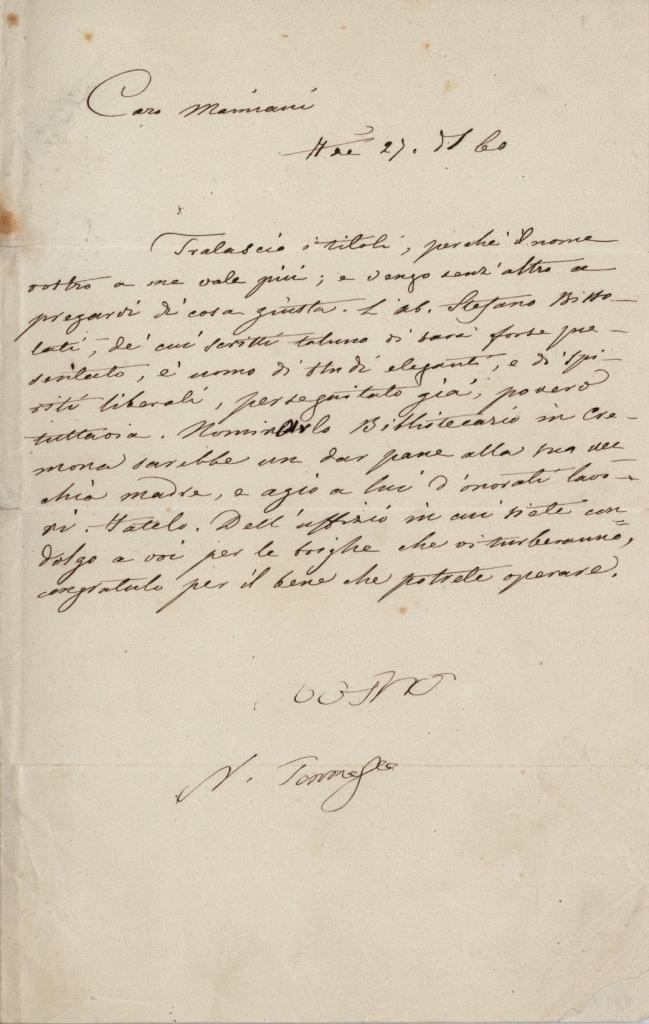 Caro Mamiani
27. 60
Tralascio i titoli, perchè il nome
vostro a me vale più; e vengo senz'altro a
pregarvi di cosa giusta. L'ab. Stefano Bisso-
lati, de' cui scritti taluno vi sarà forse pre-
sentato, è uomo di studi eleganti, e di spi-
riti liberali, perseguitato già, povero
tuttavia. Nominarlo Bibliotecario in Cre-
mona sarebbe un dar pane alla sua vec-
chia madre, e agio a lui d'onorati lavo-
ri. Fatelo. Dell'uffizio in cui siete con-
dolgo a voi per le brighe che vi turberanno,
congratulo per il bene che potrete operare.
vostro
N. Tommaseo